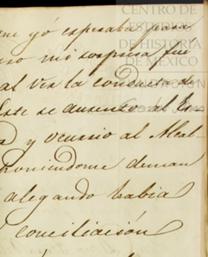 CENTRO DE
ESTUDIOS
DE HISTORIA
DE MEXICO
me yó esperaba para
ero mi sorpresa fué
al ver la conducta de
Este se ausentó al Es
a y ocurrio al Alcal
poniendome deman
alegando habia
conciliación